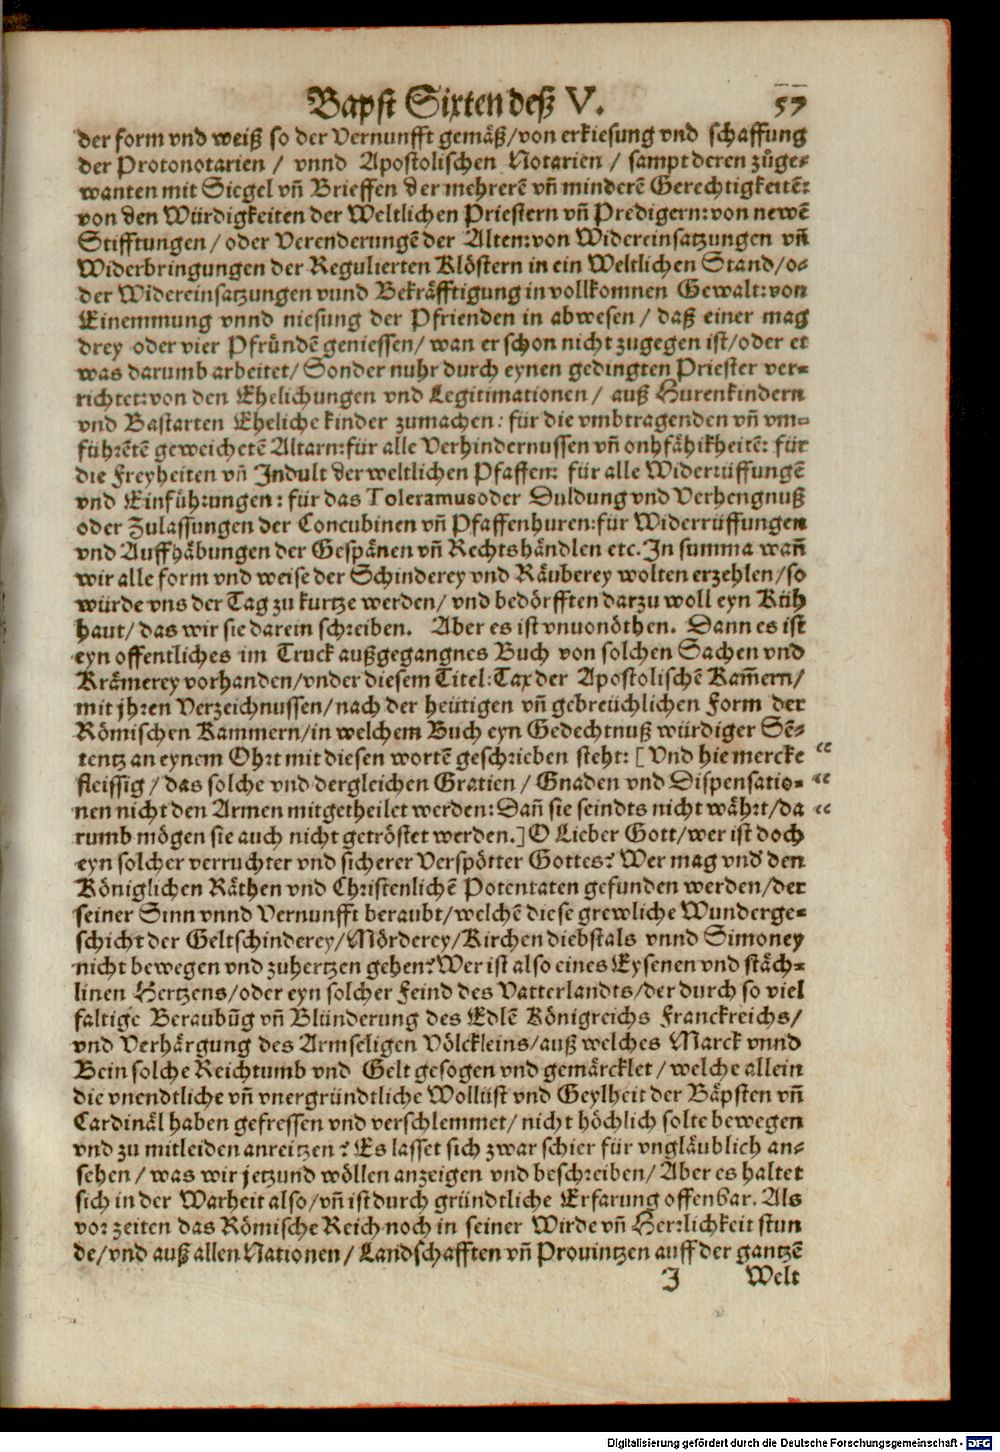 Bapst Sixten deß V. 57
der form vnd weiß so der Vernunfft gemäß/von erkiesung vnd schaffung
der Protonotarien / vnnd Apostolischen Notarien / sampt deren zůge-
wanten mit Siegel vñ Brieffen der mehrerẽ vñ minderẽ Gerechtigkeitẽ:
von den Würdigkeiten der Weltlichen Priestern vñ Predigern: von newẽ
Stifftungen / oder Verenderungẽ der Alten: von Widereinsatzungen vñ
Widerbringungen der Regulierten Klöstern in ein Weltlichen Stand/o-
der Widereinsatzungen vnnd Bekräfftigung in vollkomnen Gewalt: von
Einemmung vnnd niesung der Pfrienden in abwesen / daß einer mag
drey oder vier Pfründẽ geniessen/ wan er schon nicht zugegen ist/oder et
was darumb arbeitet/ Sonder nuhr durch eynen gedingten Priester ver-
richtet: von den Ehelichungen vnd Legitimationen / auß Hurenkindern
vnd Bastarten Eheliche kinder zumachen: für die vmbtragenden vñ vm-
führẽtẽ geweichetẽ Altarn: für alle Verhindernussen vñ onhfähikheitẽ: für
die Freyheiten vñ Indult der weltlichen Pfaffen: für alle Widerrüffungẽ
vnd Einführungen: für das Toleramus oder Duldung vnd Verhengnuß
oder Zulassungen der Concubinen vñ Pfaffenhuren: für Widerrüffungen
vnd Auffhäbungen der Gespänen vñ Rechtshändlen etc. In summa wañ
wir alle form vnd weise der Schinderey vnd Räuberey wolten erzehlen/so
würde vns der Tag zu kurtze werden/ vnd bedörfften darzu woll eyn Küh
haut/ das wir sie darein schreiben. Aber es ist vnuonöthen. Dann es ist
eyn offentliches im Truck außgegangnes Buch von solchen Sachen vnd
Krämerey vorhanden/vnder diesem Titel: Tax der Apostolischẽ Kam̃ern/
mit jhren Verzeichnussen/nach der heütigen vñ gebreüchlichen Form der
Römischen Kammern/in welchem Buch eyn Gedechtnuß würdiger Sẽ-
tentz an eynem Ohrt mit diesen wortẽ geschrieben steht: [ Vnd hie mercke “
fleissig / das solche vnd dergleichen Gratien / Gnaden vnd Dispensatio- “
nen nicht den Armen mitgetheilet werden: Dañ sie seindts nicht währt/da “
rumb mögen sie auch nicht getröstet werden.] O Lieber Gott/wer ist doch
eyn solcher verruchter vnd sicherer Verspötter Gottes? Wer mag vnd den
Königlichen Räthen vnd Christenlichẽ Potentaten gefunden werden/der
seiner Sinn vnnd Vernunfft beraubt/welchẽ diese grewliche Wunderge-
schicht der Geltschinderey/Mörderey/Kirchen diebstals vnnd Simoney
nicht bewegen vnd zuhertzen gehen? Wer ist also eines Eysenen vnd stäch-
linen Hertzens/oder eyn solcher Feind des Vatterlandts/der durch so viel
faltige Beraubũg vñ Blünderung des Edlẽ Königreichs Franckreichs/
vnd Verhärgung des Armseligen Völckleins/auß welches Marck vnnd
Bein solche Reichtumb vnd Gelt gesogen vnd gemärcklet / welche allein
die vnendtliche vñ vnergründtliche Wollüst vnd Geylheit der Bäpsten vñ
Cardinäl haben gefressen vnd verschlemmet/ nicht höchlich solte bewegen
vnd zu mitleiden anreitzen? Es lasset sich zwar schier für vngläublich an-
sehen / was wir jetzund wöllen anzeigen vnd beschreiben/ Aber es haltet
sich in der Warheit also/vñ ist durch gründtliche Erfarung offenbar. Als
vor zeiten das Römische Reich noch in seiner Wirde vñ Herrlichkeit stun
de/vnd auß allen Nationen / Landschafften vñ Prouintzen auff der gantzẽ
J Welt
Digitalisierung gefördert durch die Deutsche Forschungsgemeinschaft - DFG